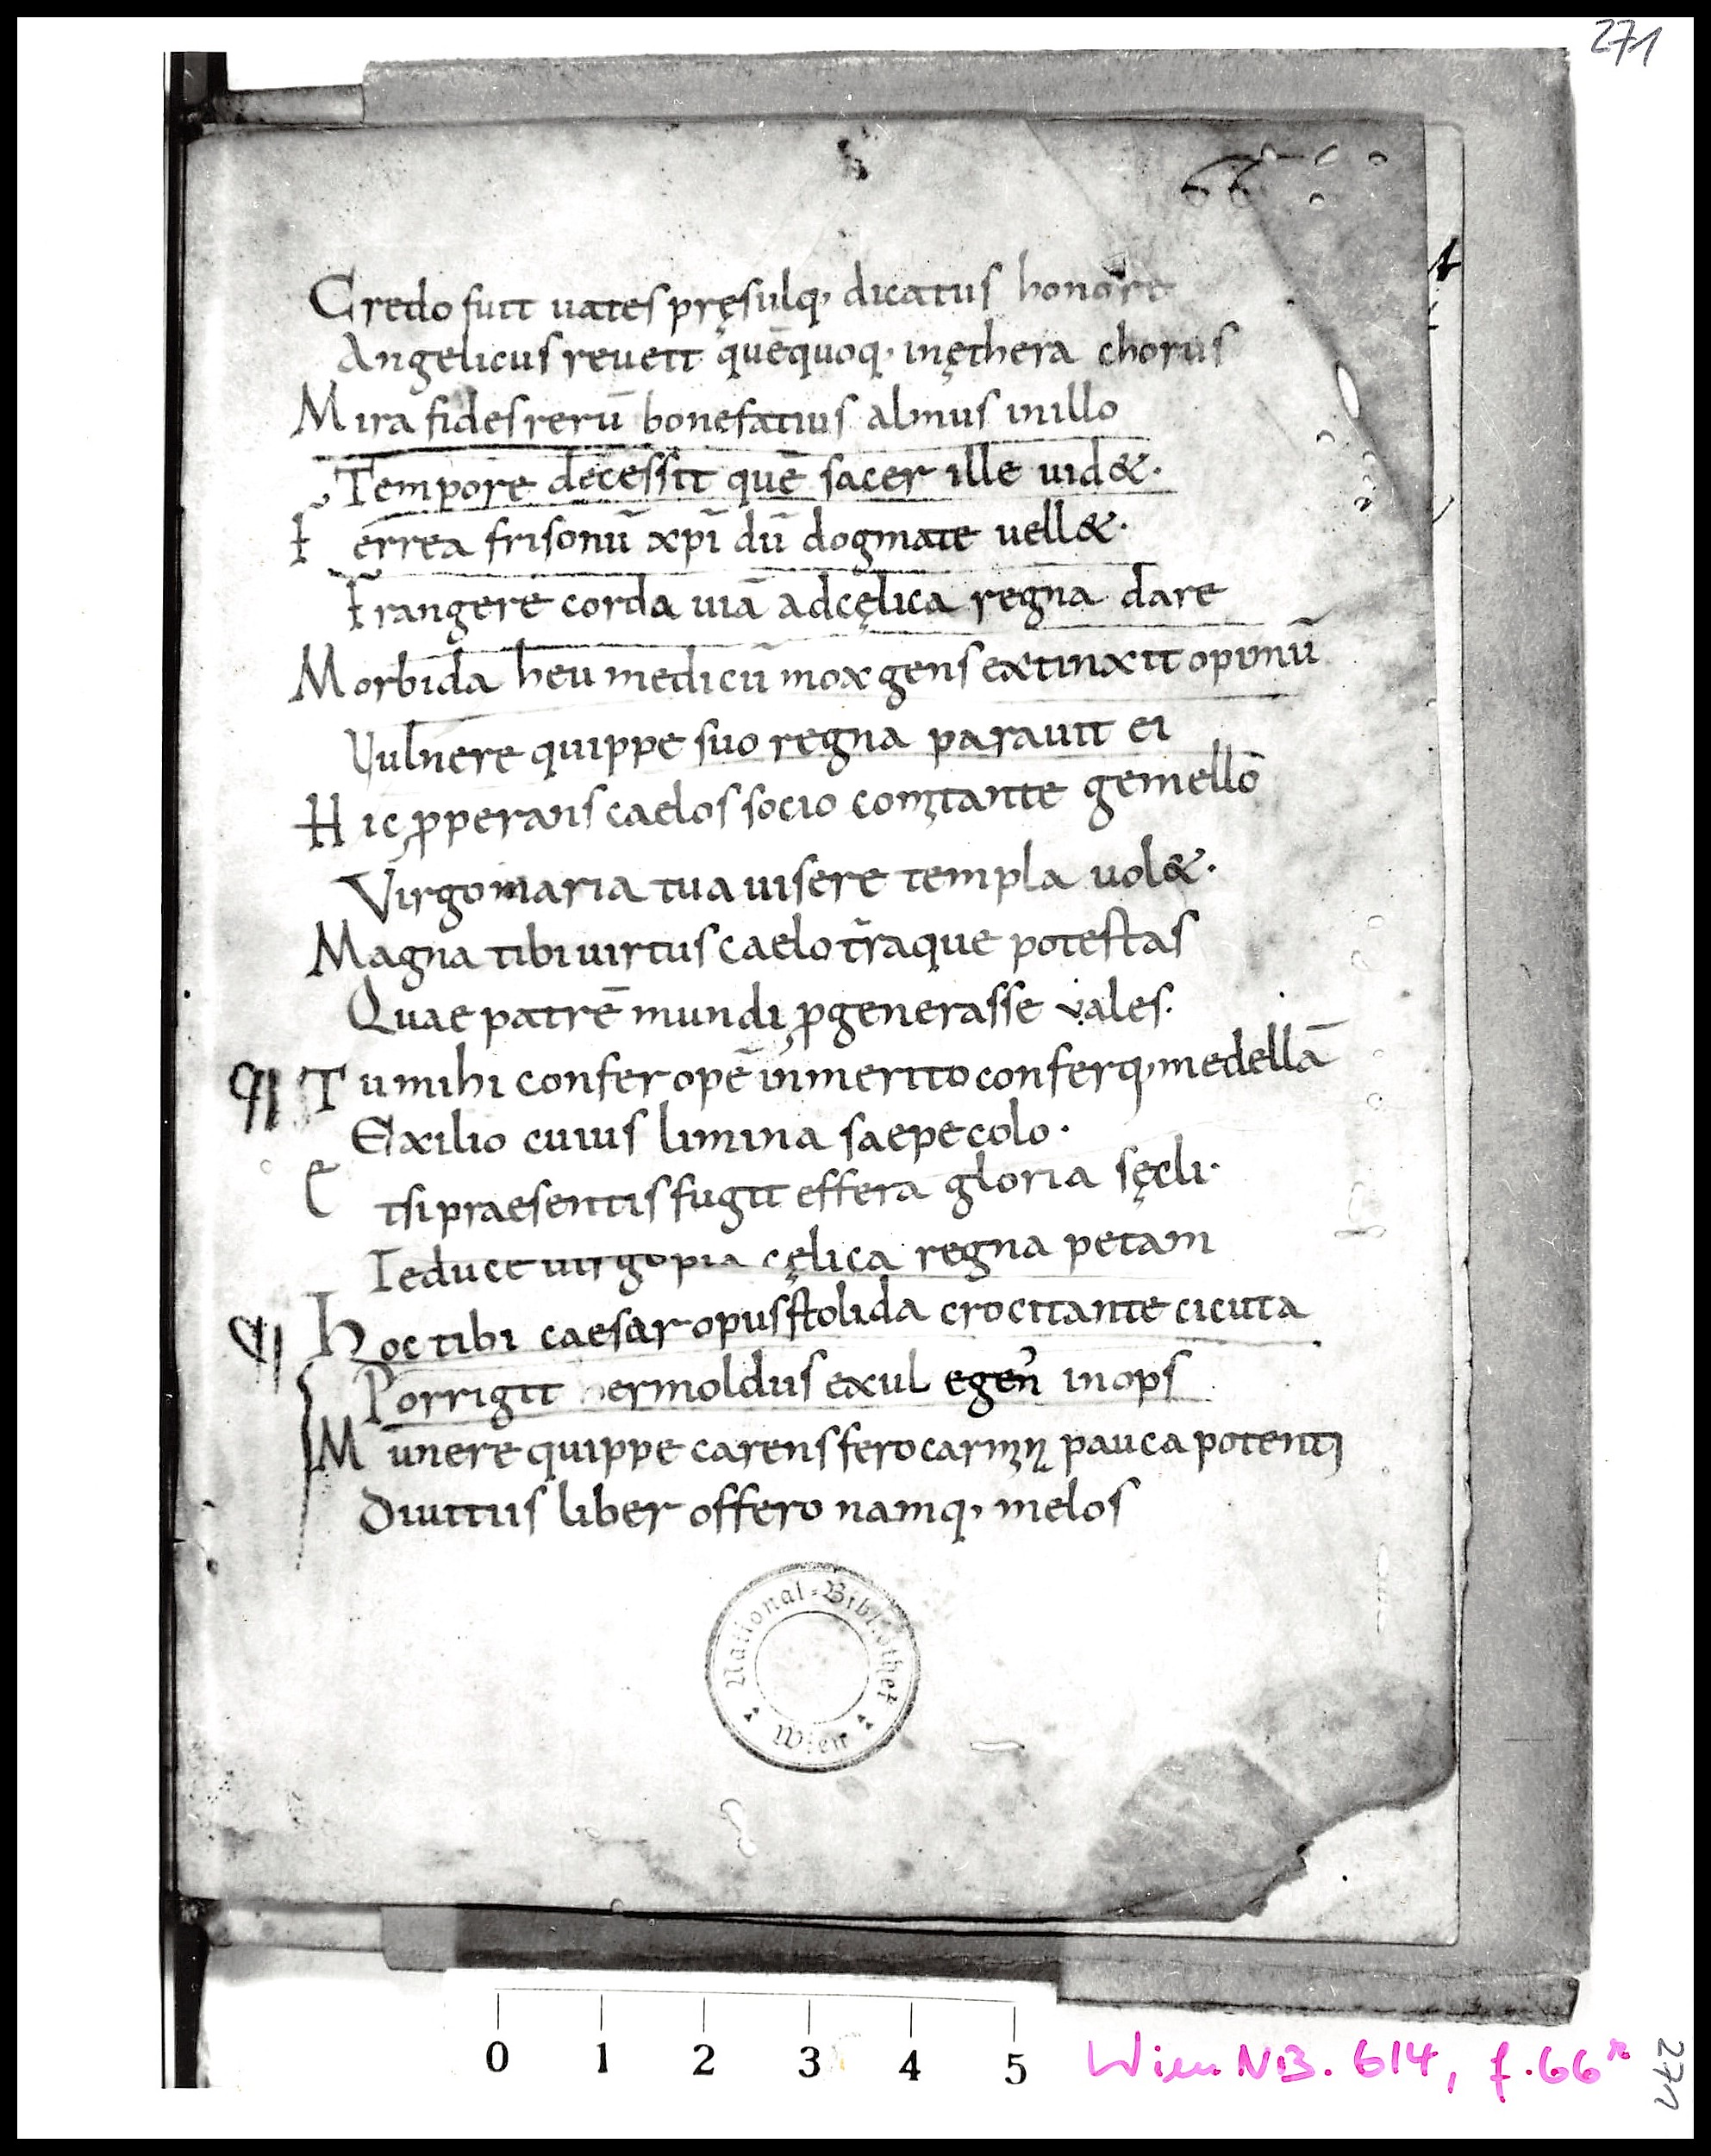 271
66
Credo fuit uates pręsulq, dicatus honore
Angelicus reueit quēquoq, inęthera chorus
Mira fides rerū bonefatius almus inillo
Tempore decessit quē sacer ille uid&.
F errea frisonū xpī dū dogmate uell&.
Frangere corda uiā adcęlica regna dare
Morbida heu medicū mox gens extinxit opimū
Uulnere quippe suo regna parauit ei
Hic ꝓperans caelos socio comitante gemello
Virgo maria tua uisere templa uol&.
Magna tibi uirtus caelo t̄raque potestas
Quae patrē mundi ꝓgenerasse vales.
Tu mihi confer opē inmerito conferq, medellā
Exilio cuius limina saepe colo.
E tsi praesentis fugit effera gloria sęcli.
Te duce uirgo pia cęlica regna petam
Hoc tibi caesar opus stolida crocitante cicuta
Porrigit hermoldus exul egen᾽ inops
M unere quippe carens fero carmina pauca potenti
Diuitiis liber offero namq, melos
National-Bibliothek
Wien
0 1 2 3 4 5
Wien NB. 614, f. 66r
271